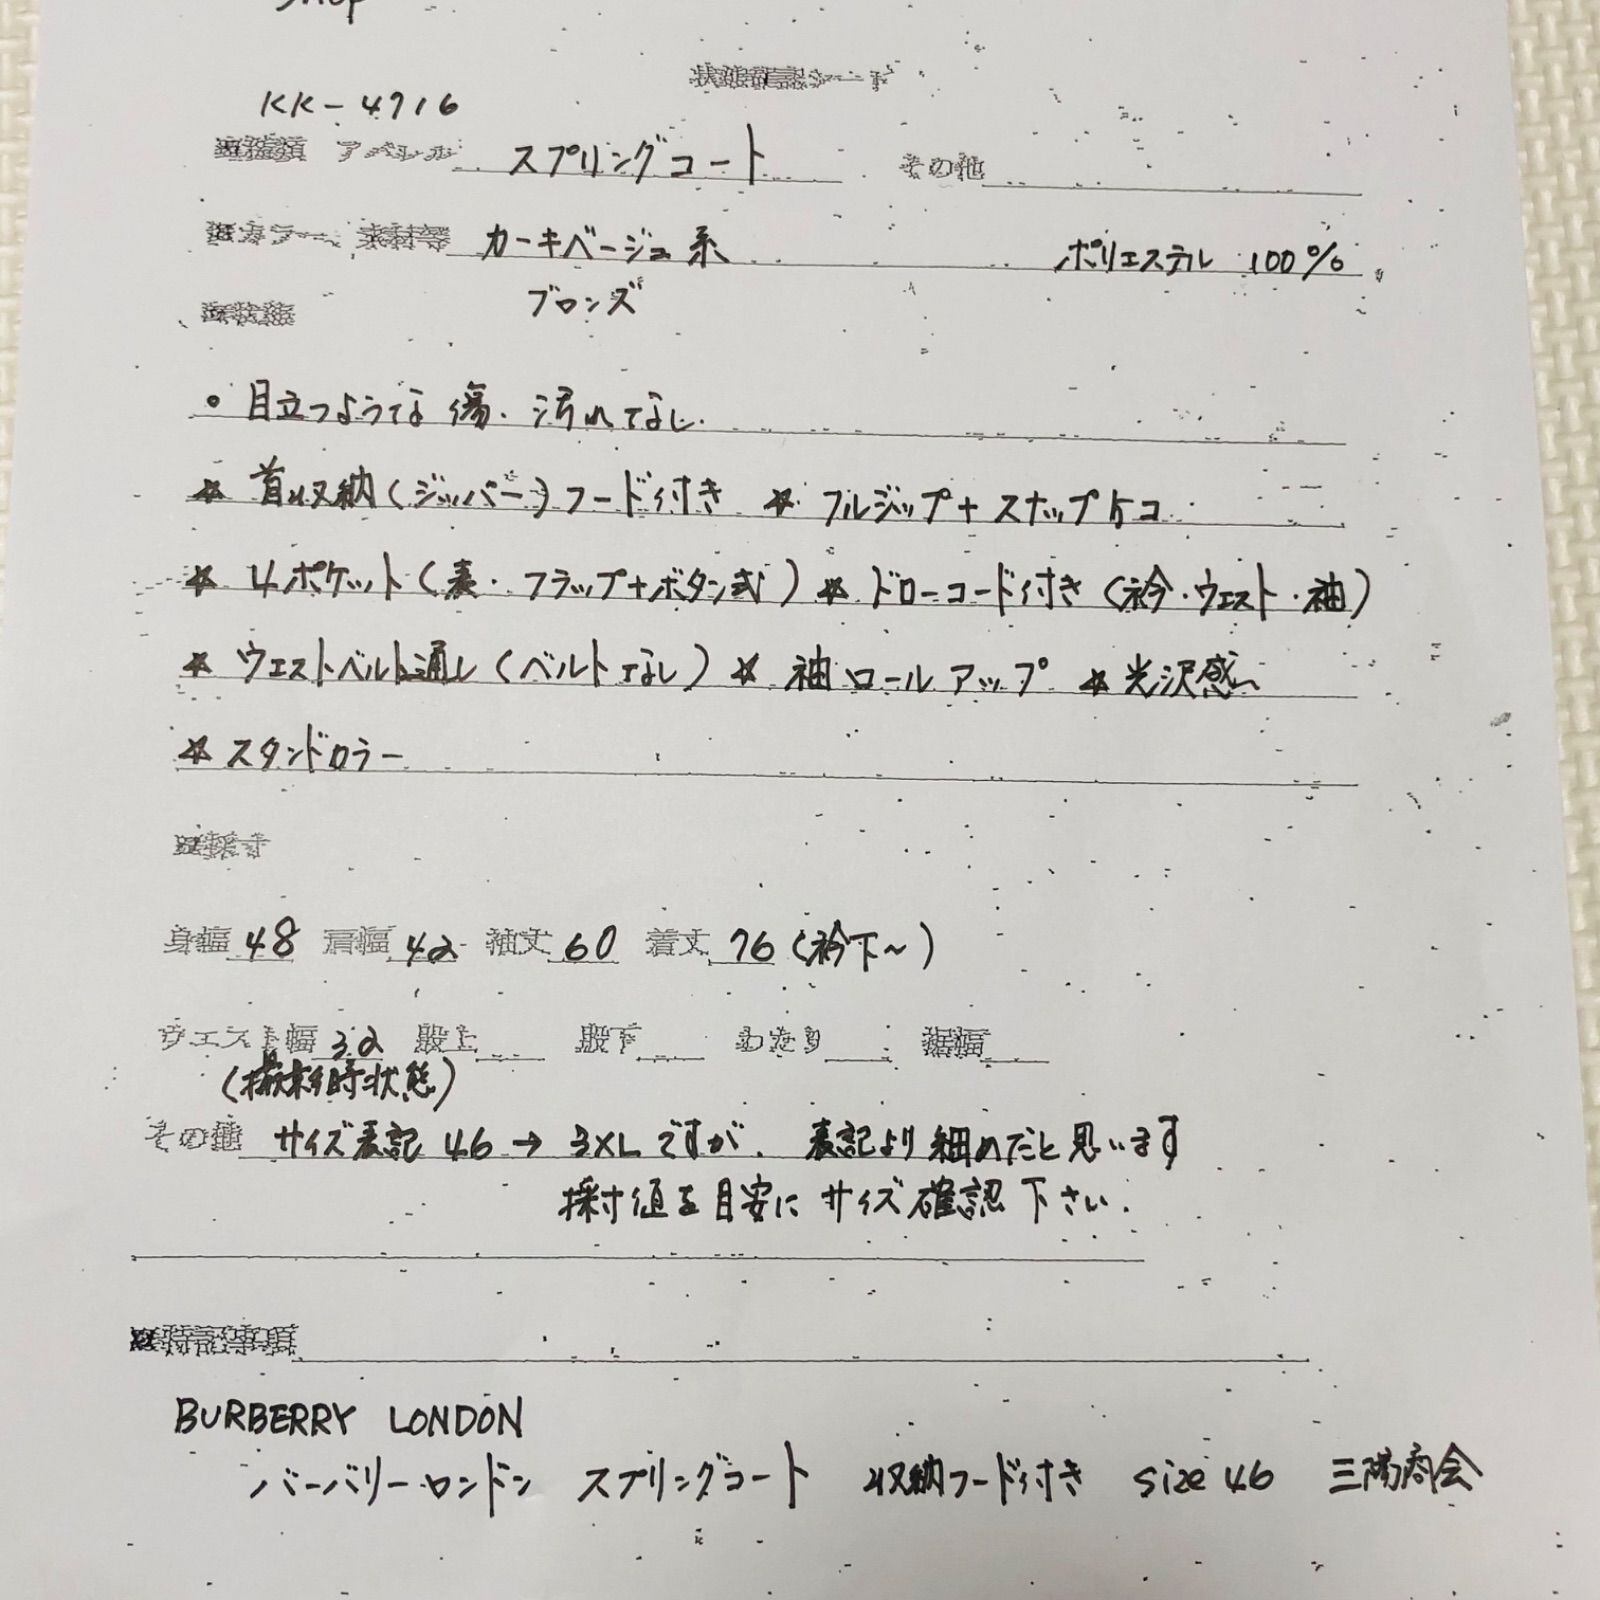 Shop
状態確認シート
KK-4716
種類 アパレル スプリングコート その他
カラー、素材等 カーキベージュ系 ポリエステル 100%
ブロンズ
状態
。目立つような傷・汚れなし.
☆ 首収納(ジッパー)フード付き ☆ フルジップ+スナップケコ
☆ 4ポケット(表・フラップ+ボタン式) ☆ ドローコード付き(衿・ウエスト・袖)
☆ ウエストベルト通し(ベルトなし) ☆ 袖ロールアップ ☆ 光沢感~
☆ スタンドカラー
採寸
身幅 48 肩幅 42 袖丈 60 着丈 76 (衿下~)
ウエスト幅 32 股上 股下 わたり 裾幅
(撮影時状態)
その他 サイズ表記 46 → 3XLですが、表記より細めだと思います
採寸値を目安にサイズ確認下さい.
特記事項
BURBERRY LONDON
バーバリーロンドン スプリングコート 収納フード付き size 46 三陽商会